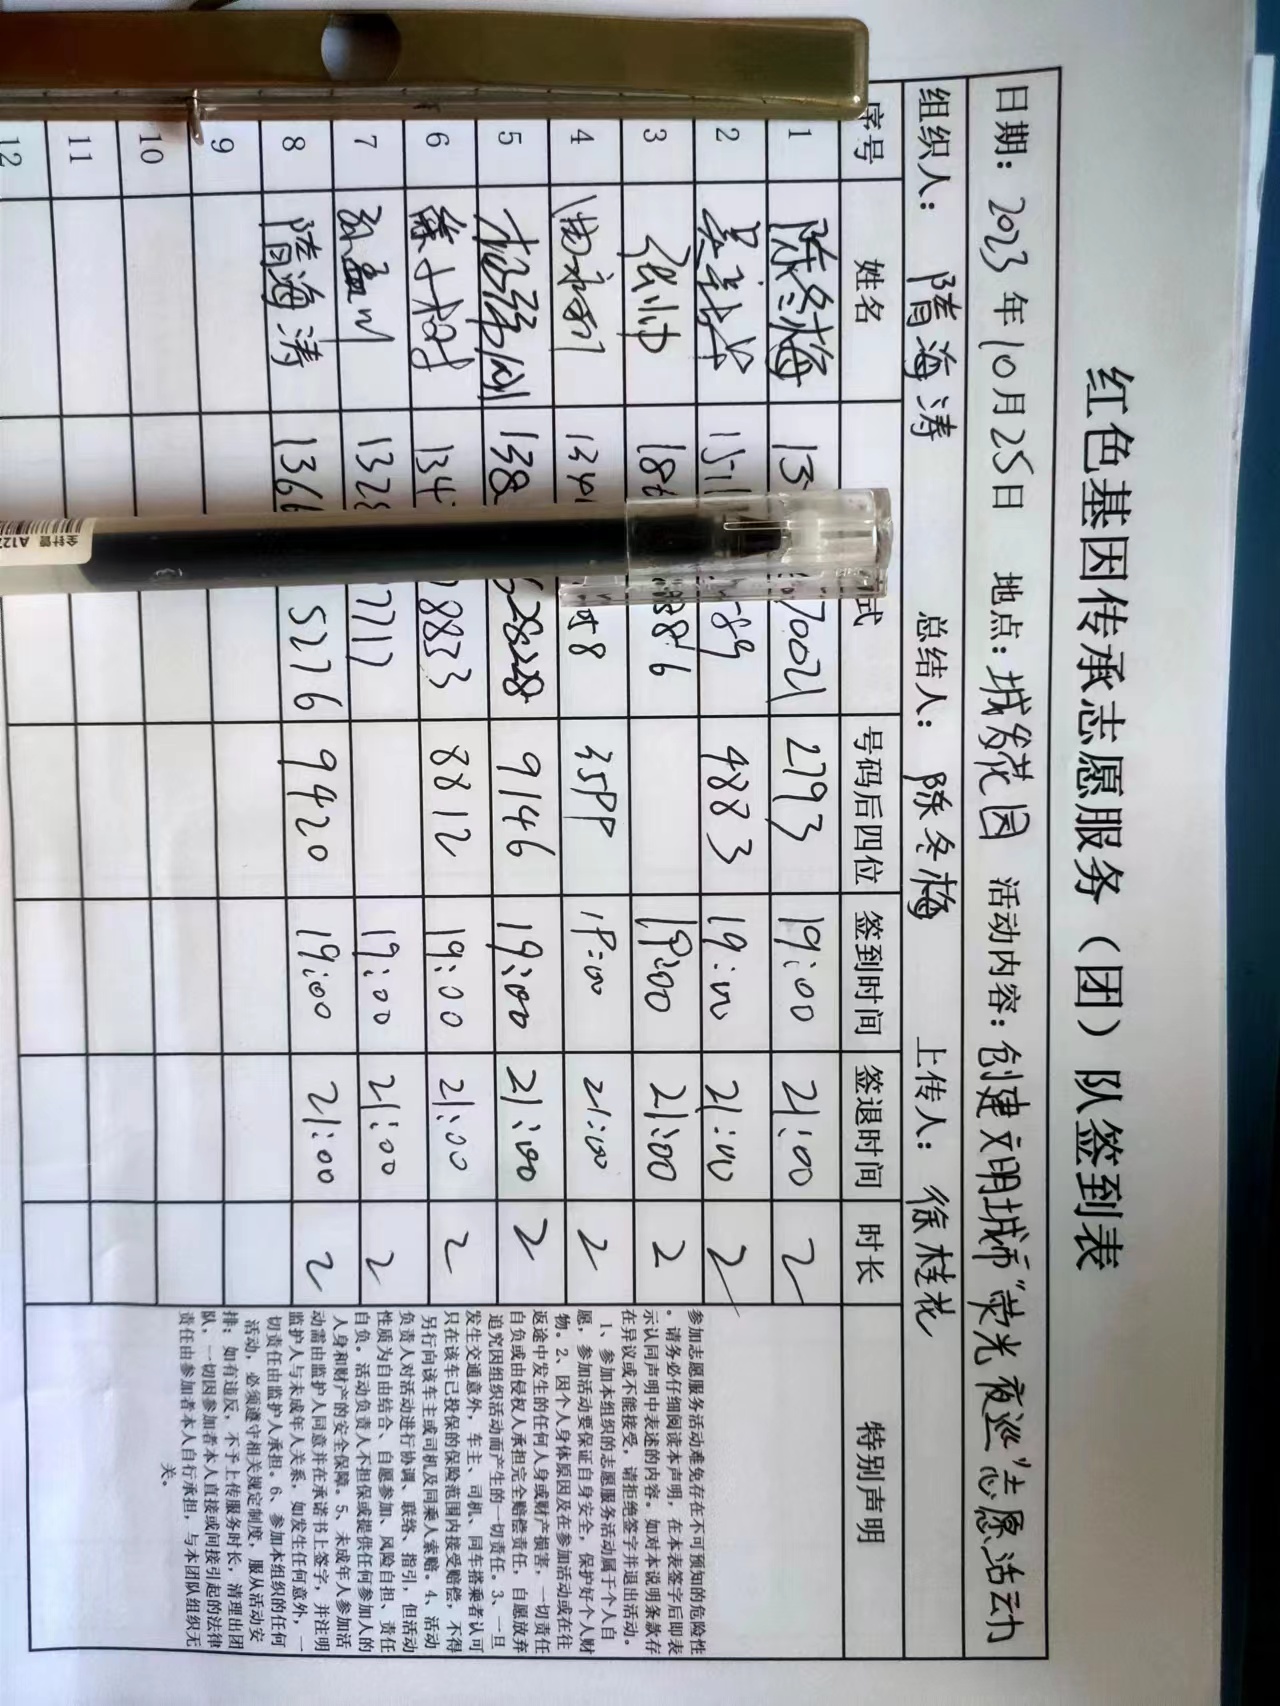 红色基因传承志愿服务（团）队签到表
日期：2023年10月25日 地点：城发花园 活动内容：创建文明城市“荧光夜巡”志愿活动
组织人：隋海涛 总结人：陈冬梅 上传人：徐桂花
序号 姓名 式 号码后四位 签到时间 签退时间 时长 特别声明
1 陈冬梅 13 70021 2793 19:00 21:00 2
2 1511 89 4883 19:00 21:00 2
3 张帅 186 8886 19:00 21:00 2
4 134 58 3599 19:00 21:00 2
5 杨强刚 138 28228 9146 19:00 21:00 2
6 徐小树 134 8833 8812 19:00 21:00 2
7 孙孟川 132 7717 19:00 21:00 2
8 隋海涛 1366 5276 9420 19:00 21:00 2
9
10
11
12
参加志愿服务活动难免存在不可预知的危险性
。请务必仔细阅读本声明，在本表签字后即表
示认同声明中表述的内容。如对本说明条款存
在异议或不能接受，请拒绝签字并退出活动。
1、参加本组织的志愿服务活动属于个人自
愿，参加活动要保证自身安全，保护好个人财
物。2、因个人身体原因及在参加活动或在往
返途中发生的任何人身或财产损害，一切责任
自负或由侵权人承担完全赔偿责任，自愿放弃
追究因组织活动而产生的一切责任。3、一旦
发生交通意外，车主、司机、同车搭乘者认可
只在该车已投保的保险范围内接受赔偿，不得
另行向该车主或司机及同乘人索赔。4、活动
负责人对活动进行协调、联络、指引，但活动
性质为自由结合、自愿参加、风险自担、责任
自负。活动负责人不担保或提供任何参加人的
人身和财产的安全保障。5、未成年人参加活
动需由监护人同意并在承诺书上签字，并注明
监护人与未成年人关系，如发生任何意外，一
切责任由监护人承担。6、参加本组织的任何
活动，必须遵守相关规定制度，服从活动安
排；如有违反，不予上传服务时长，清理出团
队，一切因参加者本人直接或间接引起的法律
责任由参加者本人自行承担，与本团队组织无
关。
全针管